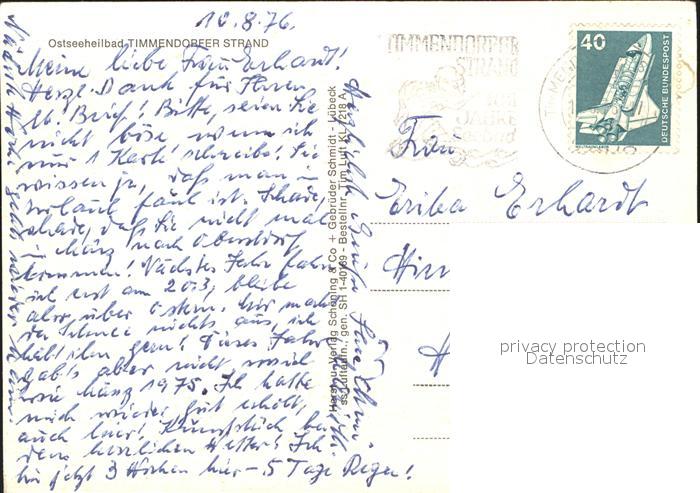 10.8.76.
Ostseeheilbad TIMMENDORFER STRAND
Meine liebe Frau Erhardt!
Herzl. Dank für Ihren
lb. Brief! Bitte, seien Sie
nicht böse, wenn ich
nur 1 Karte schreibe! Sie
wissen ja, daß man im
Urlaub faul ist. Schade,
schade, daß Sie nicht mal
im März nach Oberstdorf
kommen! Nächstes Jahr fahre
ich erst am 20.3, bleibe
also über Ostern. Mir macht
der Schnee nichts aus, ich
hab' ihn gern! Dieses Jahr
gab's aber nicht soviel
wie März 1975. Ich hatte
mich wieder gut erholt,
auch hier! Kunststück bei
dem herrlichen Wetter! Ich
bin jetzt 3 Wochen hier – 5 Tage Regen!
Herzliche Grüße
Herst. u. Verlag Schöning & Co + Gebrüder Schmidt - Lübeck
SH 1-40169 - Bestellnr. Tim Luft KL 1218 A
TIMMENDORFER
STRAND
JAHRE
40
DEUTSCHE BUNDESPOST
Frau
Erika Erhardt
privacy protection
Datenschutz